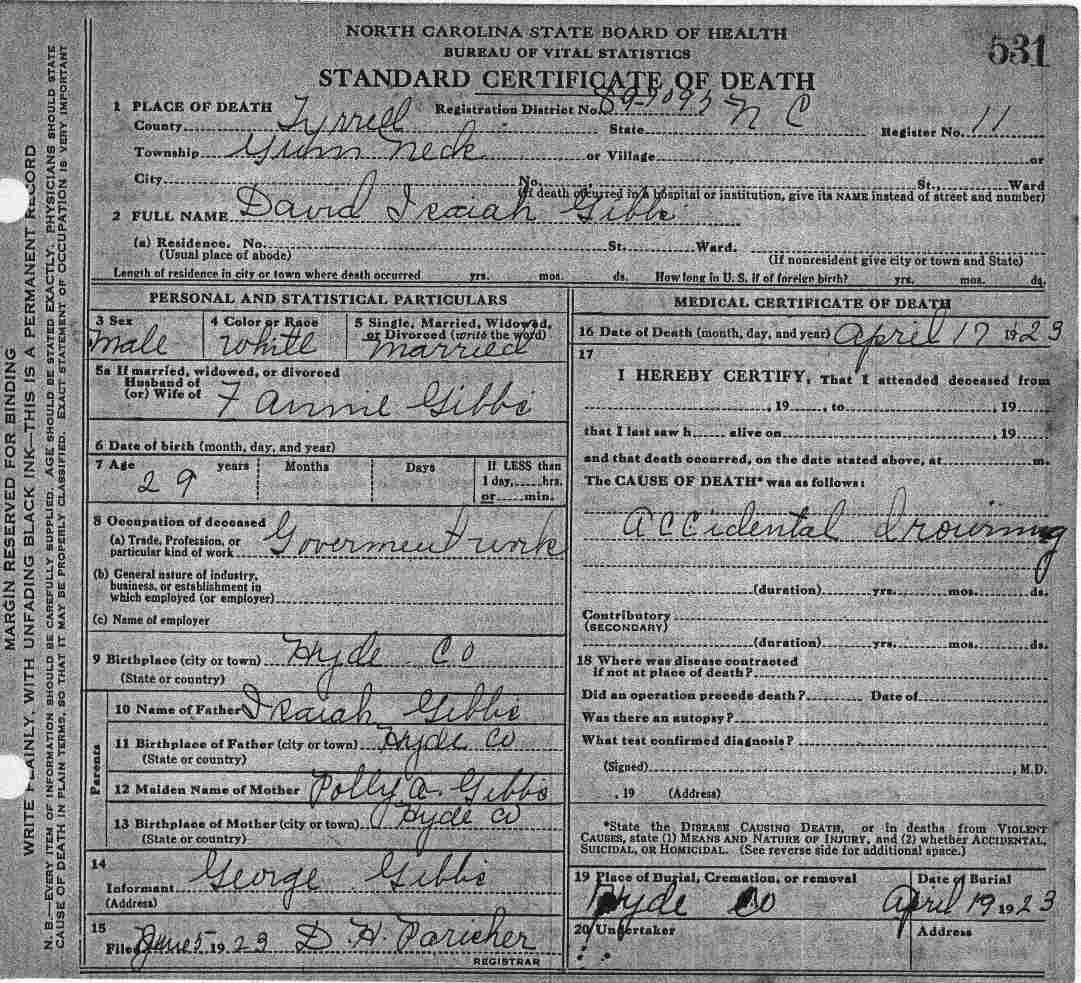 NORTH CAROLINA STATE BOARD OF HEALTH
BUREAU OF VITAL STATISTICS
531
STANDARD CERTIFICATE OF DEATH
1 PLACE OF DEATH Registration District No. 89-7093
County Tyrrell State N C Register No. 11
Township Gum Neck or Village or
City No. St., Ward
(If death occurred in a hospital or institution, give its NAME instead of street and number)
2 FULL NAME David Isaiah Gibbs
(a) Residence. No. St. Ward.
(Usual place of abode) (If nonresident give city or town and State)
Length of residence in city or town where death occurred yrs. mos. ds. How long in U. S. if of foreign birth? yrs. mos. ds.
PERSONAL AND STATISTICAL PARTICULARS
3 Sex 4 Color or Race 5 Single, Married, Widowed, or Divorced (write the word)
Male White Married
5a If married, widowed, or divorced
Husband of
(or) Wife of Fannie Gibbs
6 Date of birth (month, day, and year)
7 Age years Months Days If LESS than
29 1 day, hrs.
or min.
8 Occupation of deceased
(a) Trade, Profession, or
particular kind of work Goverment work
(b) General nature of industry,
business, or establishment in
which employed (or employer)
(c) Name of employer
9 Birthplace (city or town) Hyde Co
(State or country)
Parents
10 Name of Father Isaiah Gibbs
11 Birthplace of Father (city or town) Hyde Co
(State or country)
12 Maiden Name of Mother Polly a. Gibbs
13 Birthplace of Mother (city or town) Hyde Co
(State or country)
14
Informant George Gibbs
(Address)
15
Filed June 5 1923 D. H. Paricher
REGISTRAR
MEDICAL CERTIFICATE OF DEATH
16 Date of Death (month, day, and year) April 17 1923
17
I HEREBY CERTIFY, That I attended deceased from
, 19 , to , 19
that I last saw h alive on , 19
and that death occurred, on the date stated above, at m.
The CAUSE OF DEATH* was as follows:
accidental drowining
(duration) yrs. mos. ds.
Contributory
(SECONDARY)
(duration) yrs. mos. ds.
18 Where was disease contracted
if not at place of death?
Did an operation precede death? Date of
Was there an autopsy?
What test confirmed diagnosis?
(Signed) , M.D.
, 19 (Address)
*State the DISEASE CAUSING DEATH, or in deaths from VIOLENT
CAUSES, state (1) MEANS AND NATURE OF INJURY, and (2) whether ACCIDENTAL,
SUICIDAL, OR HOMICIDAL. (See reverse side for additional space.)
19 Place of Burial, Cremation, or removal Date of Burial
Hyde Co April 19 1923
20 Undertaker Address
MARGIN RESERVED FOR BINDING
WRITE PLAINLY, WITH UNFADING BLACK INK—THIS IS A PERMANENT RECORD
N. B.—EVERY ITEM OF INFORMATION SHOULD BE CAREFULLY SUPPLIED. AGE SHOULD BE STATED EXACTLY. PHYSICIANS SHOULD STATE
CAUSE OF DEATH IN PLAIN TERMS, SO THAT IT MAY BE PROPERLY CLASSIFIED. EXACT STATEMENT OF OCCUPATION IS VERY IMPORTANT